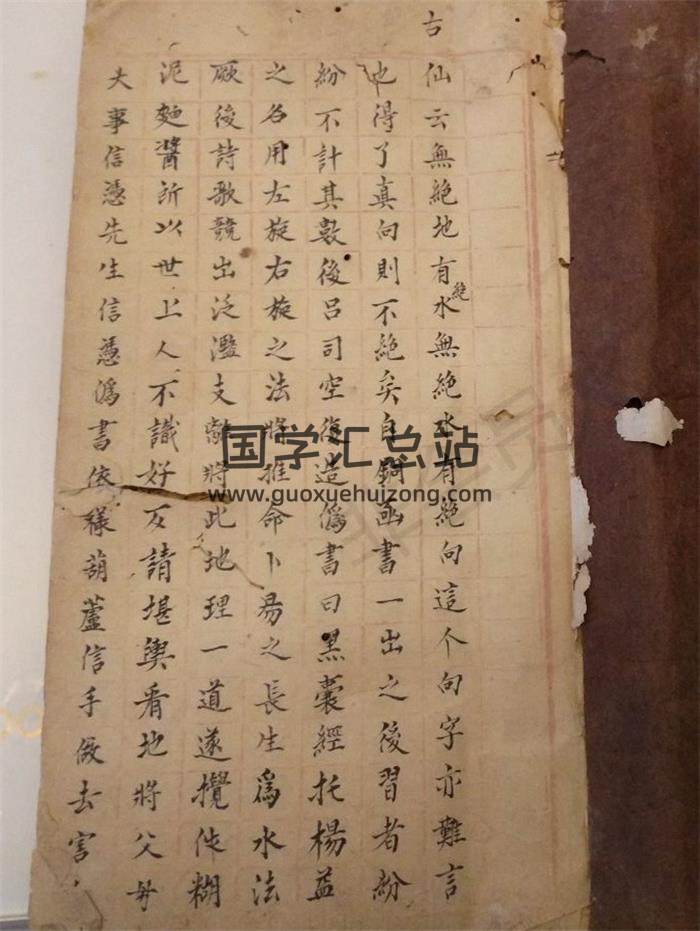 古
仙云無絶地有絶水無絶水有絶向這个向字亦難言
也得了真向則不絶矣自銅凾書一出之後習者紛
紛不計其數後吕司空復造僞書曰黑囊經托楊益
之名用左旋右旋之法將推命卜昜之長生爲水法
厥後詩歌競出泛濫支離將此地理一道遂攪作糊
泥麵醬所以世上人不識好歹請堪輿看地將父母
大事信憑先生信憑僞書依樣葫蘆信手做去害
国学汇总站
www.guoxuehuizong.com